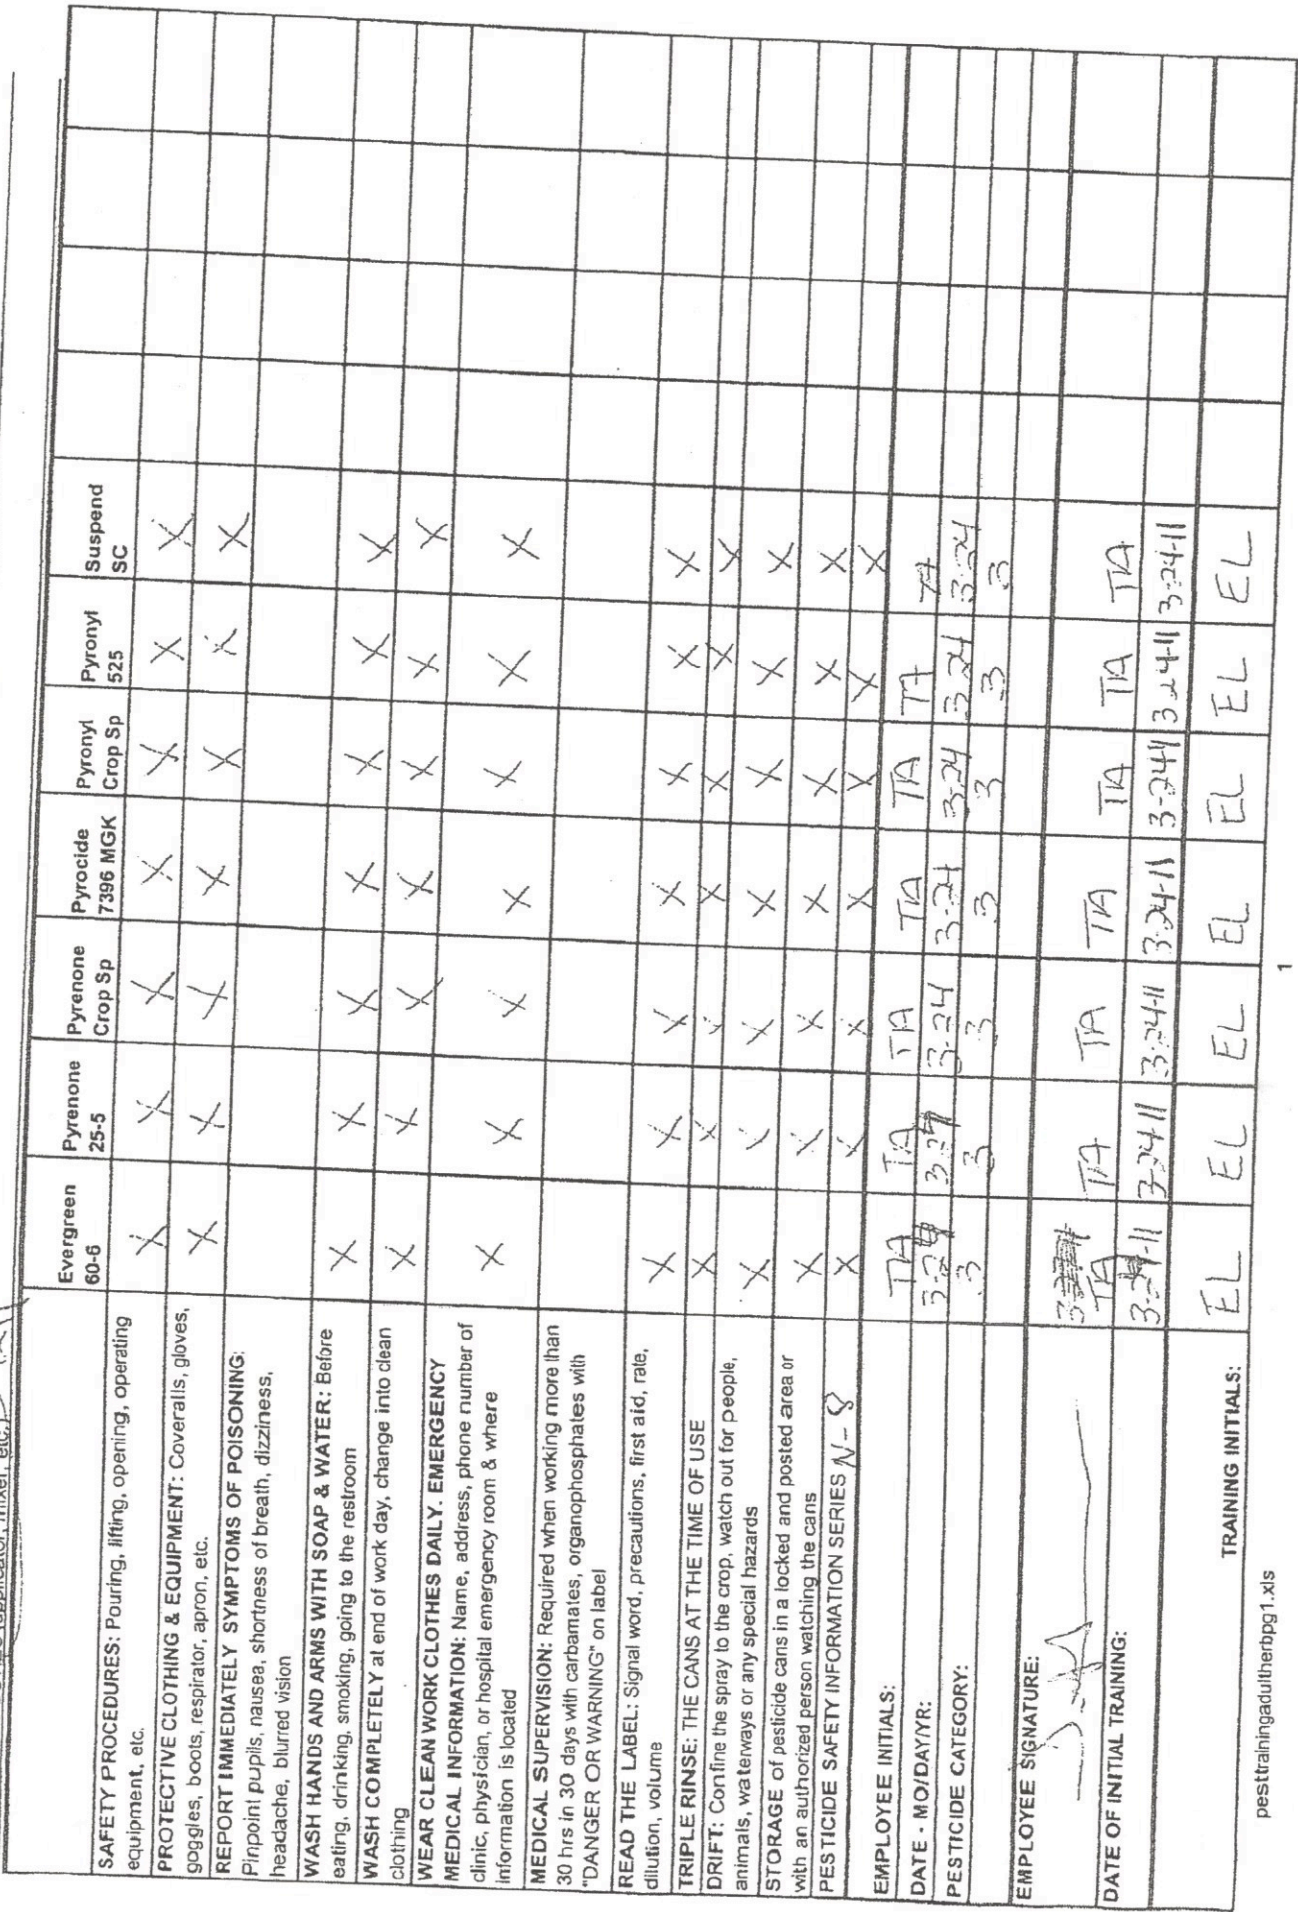 Evergreen 60-6 Pyrenone 25-5 Pyrenone Crop Sp Pyrocide 7396 MGK Pyronyl Crop Sp Pyronyl 525 Suspend SC
SAFETY PROCEDURES: Pouring, lifting, opening, operating
equipment, etc.
X X X X X X X
PROTECTIVE CLOTHING & EQUIPMENT: Coveralls, gloves,
goggles, boots, respirator, apron, etc.
X X X X X X X
REPORT IMMEDIATELY SYMPTOMS OF POISONING:
Pinpoint pupils, nausea, shortness of breath, dizziness,
headache, blurred vision
WASH HANDS AND ARMS WITH SOAP & WATER: Before
eating, drinking, smoking, going to the restroom
X X X X X X X
WASH COMPLETELY at end of work day, change into clean
clothing
X X X X X X X
WEAR CLEAN WORK CLOTHES DAILY. EMERGENCY
MEDICAL INFORMATION: Name, address, phone number of
clinic, physician, or hospital emergency room & where
information is located
X X X X X X X
MEDICAL SUPERVISION: Required when working more than
30 hrs in 30 days with carbamates, organophosphates with
"DANGER OR WARNING" on label
READ THE LABEL: Signal word, precautions, first aid, rate,
dilution, volume
X X X X X X X
TRIPLE RINSE: THE CANS AT THE TIME OF USE
X X X X X X X
DRIFT: Confine the spray to the crop, watch out for people,
animals, waterways or any special hazards
X X X X X X X
STORAGE of pesticide cans in a locked and posted area or
with an authorized person watching the cans
X X X X X X X
PESTICIDE SAFETY INFORMATION SERIES N-8
X X X X X X X
EMPLOYEE INITIALS: TA TA TA TA TA TA TA
DATE - MO/DAY/YR: 3-24 3-24 3-24 3-24 3-24 3-24 3-24
PESTICIDE CATEGORY: 3 3 3 3 3 3 3
EMPLOYEE SIGNATURE:
TA TA TA TA TA TA TA
DATE OF INITIAL TRAINING: 3-24-11 3-24-11 3-24-11 3-24-11 3-24-11 3-24-11 3-24-11
TRAINING INITIALS: EL EL EL EL EL EL EL
pesttrainingadultherbpg1.xls
1